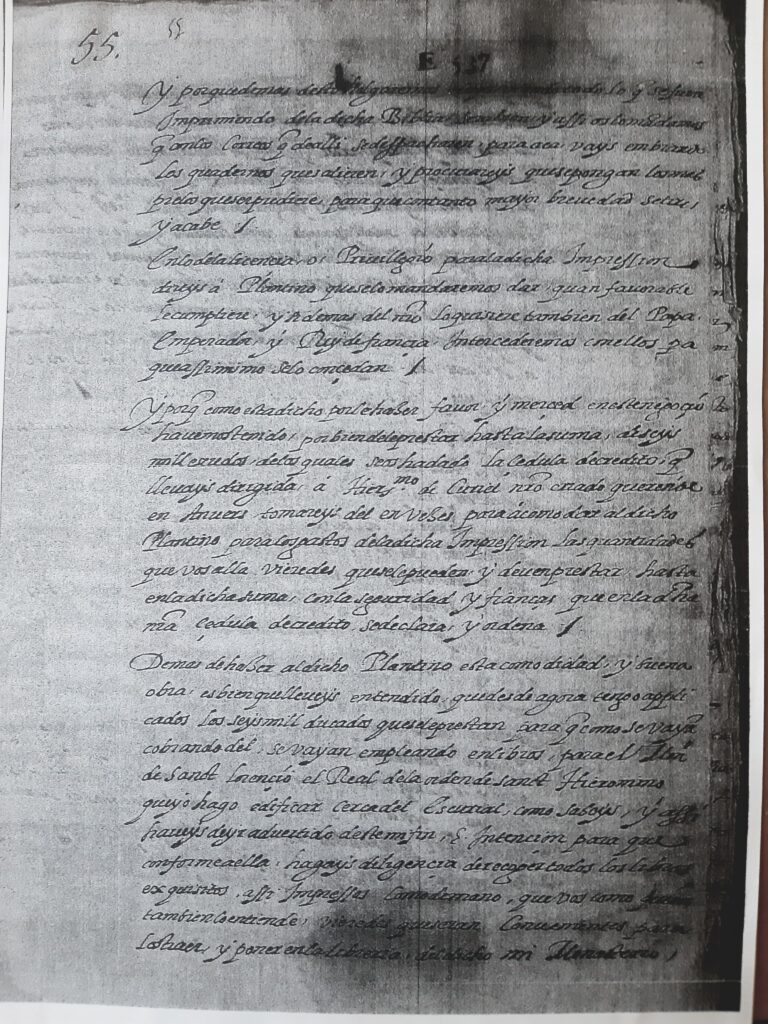 55.
55
E 537
Y porque demas desto holgaremos todo lo q̃ se fuere
Imprimiendo dela dicha Biblia y assi os lo mandamos
q̃ con los Correos q̃ de alli se despacharen, para aca, vays embiando
los quadernos que salieren, y procurareys que se pongan
prelos que se pudiere, para que con tanto mayor brevedad se
y acabe /
En lo dela licencia, o, Privillegio para la dicha Impression
direys á Plantino que se lo mandaremos dar, quan favorable
le cumpliere, y si demas del nr̃o lo quisiere tambien del Papa
Emperador, y Rey de francia, Intercederemos con ellos pa
que assi mismo se lo concedan /
Y porq̃ como esta dicho por le hazer favor, y merced en este negoçio
havemos tenido, por bien dele prestar hasta la suma, de seys
mill escudos, delos quales se os ha dado la Cedula de credito, q̃
llevays dirigida, á Hier.mo de Curiel nr̃o criado que reside
en Anvers tomareys del en vezes para acomodar al dicho
Plantino para los gastos dela dicha Impression las quantidades
que vos alla vieredes que se le pueden, y deven prestar, hasta
en la dicha suma, con la seguridad, y fianças, que en la dicha
nr̃a Çedula de credito, se declara, y ordena /
Demas de hazer al dicho Plantino esta comodidad, y buena
obra, es bien que lleveys entendido, que desde agora tengo appli
cados los seys mill ducados que se le prestan, para q̃ como se vayan
cobrando del, se vayan empleando en libros, para el
de Sanct Lorençio el Real dela orden de Sanct Hieronimo
que yo hago edificar cerca del Escurial, como sabeys, y assi
haveys de yr advertido deste mi fin, E Intencion para que
conforme a ella, hagays diligençia de recoger todos los libros
exquisitos, assi Impressos como de mano, que vos como quien
tambien lo entiende, vieredes que seran Convenientes para
los traer, y poner en la libreria, del dicho mi Monasterio,